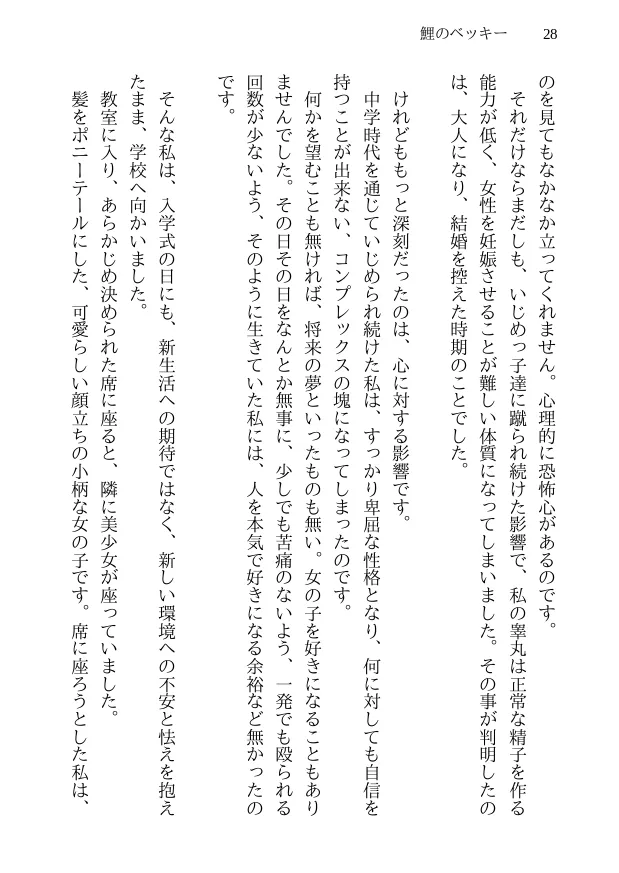 鯉のベッキー 28
のを見てもなかなか立ってくれません。心理的に恐怖心があるのです。
それだけならまだしも、いじめっ子達に蹴られ続けた影響で、私の睾丸は正常な精子を作る
能力が低く、女性を妊娠させることが難しい体質になってしまいました。その事が判明したの
は、大人になり、結婚を控えた時期のことでした。
けれどももっと深刻だったのは、心に対する影響です。
中学時代を通じていじめられ続けた私は、すっかり卑屈な性格となり、何に対しても自信を
持つことが出来ない、コンプレックスの塊になってしまったのです。
何かを望むことも無ければ、将来の夢といったものも無い。女の子を好きになることもあり
ませんでした。その日その日をなんとか無事に、少しでも苦痛のないよう、一発でも殴られる
回数が少ないよう、そのように生きていた私には、人を本気で好きになる余裕など無かったの
です。
そんな私は、入学式の日にも、新生活への期待ではなく、新しい環境への不安と怯えを抱え
たまま、学校へ向かいました。
教室に入り、あらかじめ決められた席に座ると、隣に美少女が座っていました。
髪をポニーテールにした、可愛らしい顔立ちの小柄な女の子です。席に座ろうとした私は、